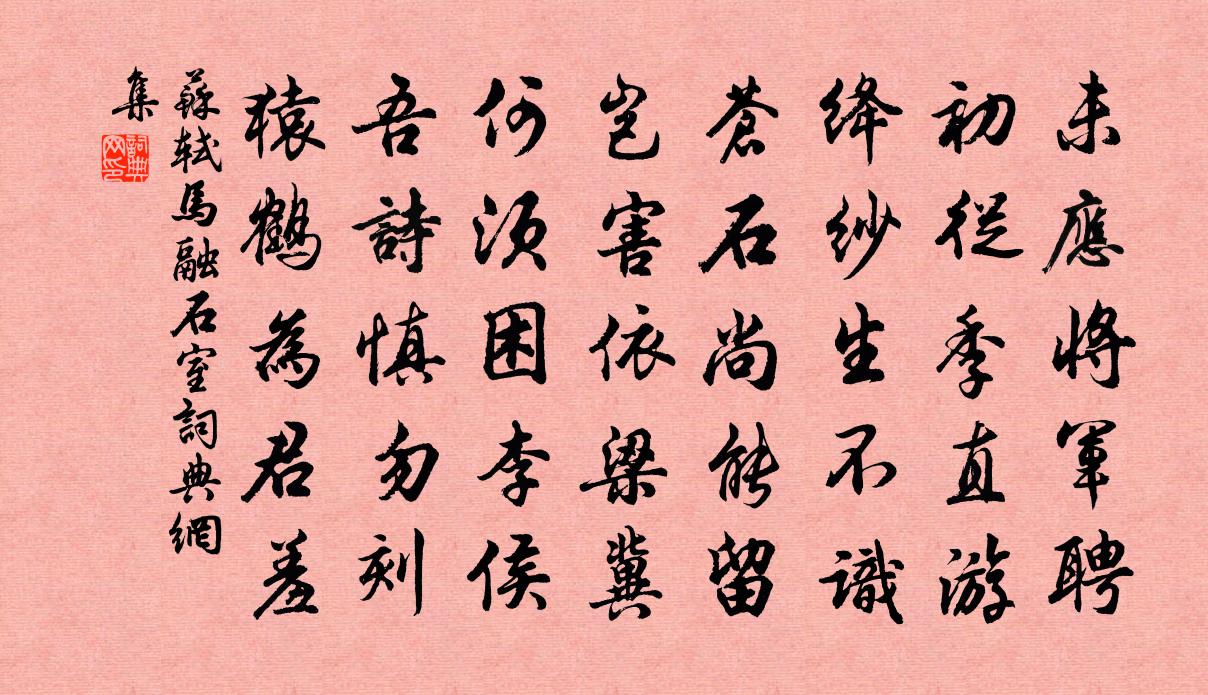 未應將軍聘
初從季直游
絳紗生不識
蒼石尚能留
豈害依梁冀
何須困李侯
吾詩慎勿刻
猿鶴為君羞
蘇軾馬融石室詞典網
集
詞典
网印